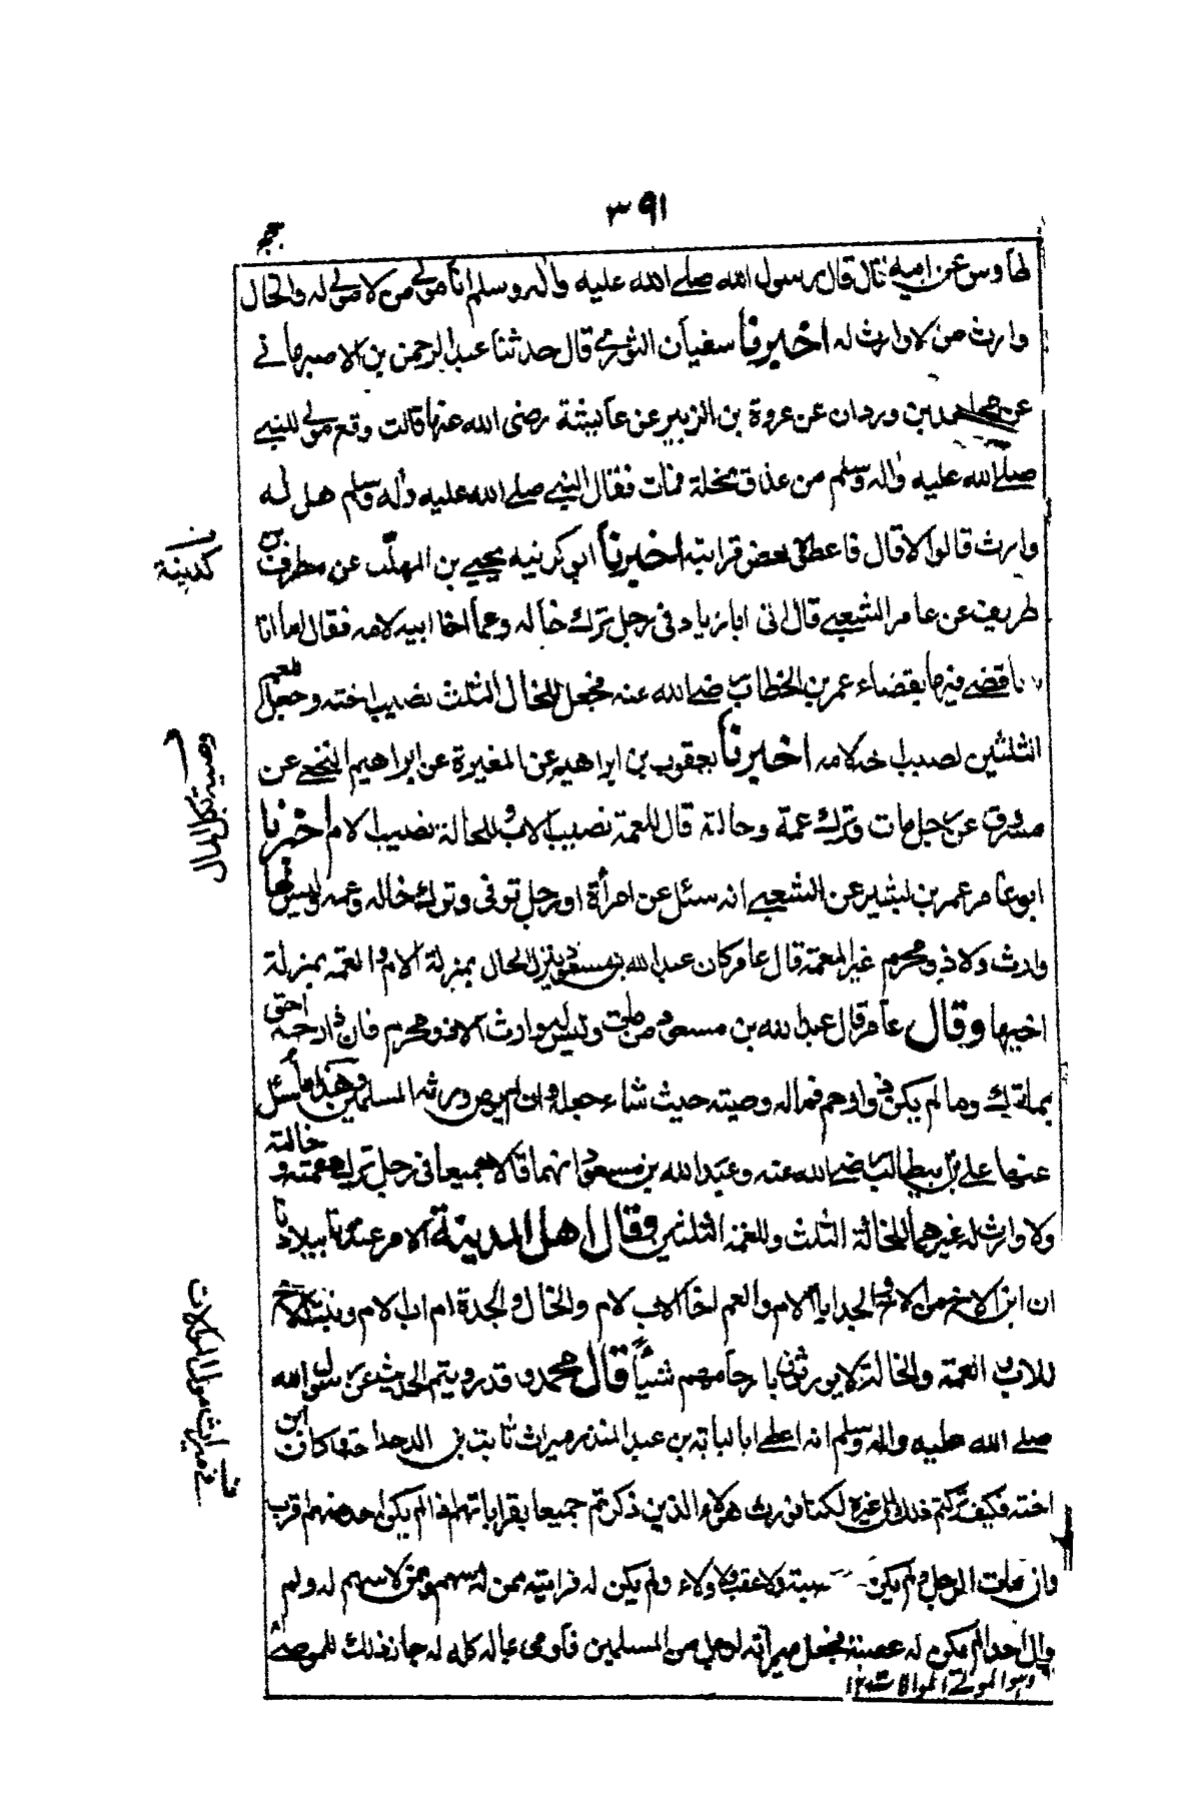 ٣٩١
طاوس عن ابيه قال قال رسول الله صلے الله عليه واٰله وسلم انا مولى من لا مولى له والخال
وارث من لا وارث له اخبرنا سفيان الثوري قال حدثنا عبد الرحمن بن الاصبهانے
عن مجاهد بن وردان عن عروة بن الزبير عن عايشة رضى الله عنها قالت وقع مولى للنبے
صلے الله عليه واٰله وسلم من عذق نخلة فمات فقال النبے صلے الله عليه واٰله وسلم هل له
وارث قالوا لا قال فاعطوه بعض قرابته اخبرنا ابو كرنيه يحيے بن المهلّب عن مطرف بن
كدينة
طريف عن عامر الشعبے قال اتى ابا زياد فى رجل ترك خاله وعما اخا ابيه لامه فقال اما انا
قضے فيها بقضاء عمر بن الخطاب رضے الله عنه فجعل للخال الثلث نصيب اخته وجعل للعم
الثلثين نصيب اخيه لامه اخبرنا يعقوب بن ابراهيم عن المغيرة عن ابراهيم النخعے عن
مسروق عن رجل مات وترك عمة وخالة قال للعمة نصيب الاب وللخالة نصيب الام اخبرنا
وصية بكل المال
ابو عامر عمر بن بشير عن الشعبے انه سئل عن امرأة او رجل توفى وترك خاله وعمه وليس لها
وارث ولا ذو محرم غير العمة قال عامر كان عبد الله بن مسعود ينزل الخال بمنزلة الام والعمه بمنزلة
اخيها وقال عامر قال عبد الله بن مسعود من مات وليس له وارث الا ذو محرم فان ذا رحمه احق
بماله وما لم يكن ذوا رحم فماله وصيته حيث شاء جعله وان لم يوص ورثه المسلمين وهذا ما سئل
عنها على بن ابيطالب رضے الله عنه وعبد الله بن مسعود انهما قالا جميعا فى رجل ترك عمته وخالته
ولا وارث له غيرهما للخالة الثلث وللعمة الثلثين وقال اهل المدينة الامر عندنا ببلادنا
ان ابن الاخ من الام والجد ابا الام والعم اخا الاب لام والخال والجدة ام اب الام وبنت الاخ
للاب والعمة والخالة لا يورثون بارحامهم شيئًا قال محمد وقد رويتم الحديث عن رسول الله
صلے الله عليه واله وسلم انه اعطے ابا لبابة بن عبد المنذر ميراث ثابت بن الدحداحة وكان ابن
فى ميراث مولى الموالات
اخته فكيف تركتم ذلك الى غيره لكنا نورث هؤلاء الذين ذكرتم جميعا بقراباتهم اذا لم يكن احد منهم اقرب
وان مات الرجل ولم يكن عصبة ولا عقب ولا ولاء ولم يكن له قرابته ممن له سهم وممن لا سهم له ولم
وال احدا لم يكن له عصبة فجعل ميراثه لرجل من المسلمين فاوصى بماله كله له جاز ذلك للموصى
وہو المولے الموالات ١٢